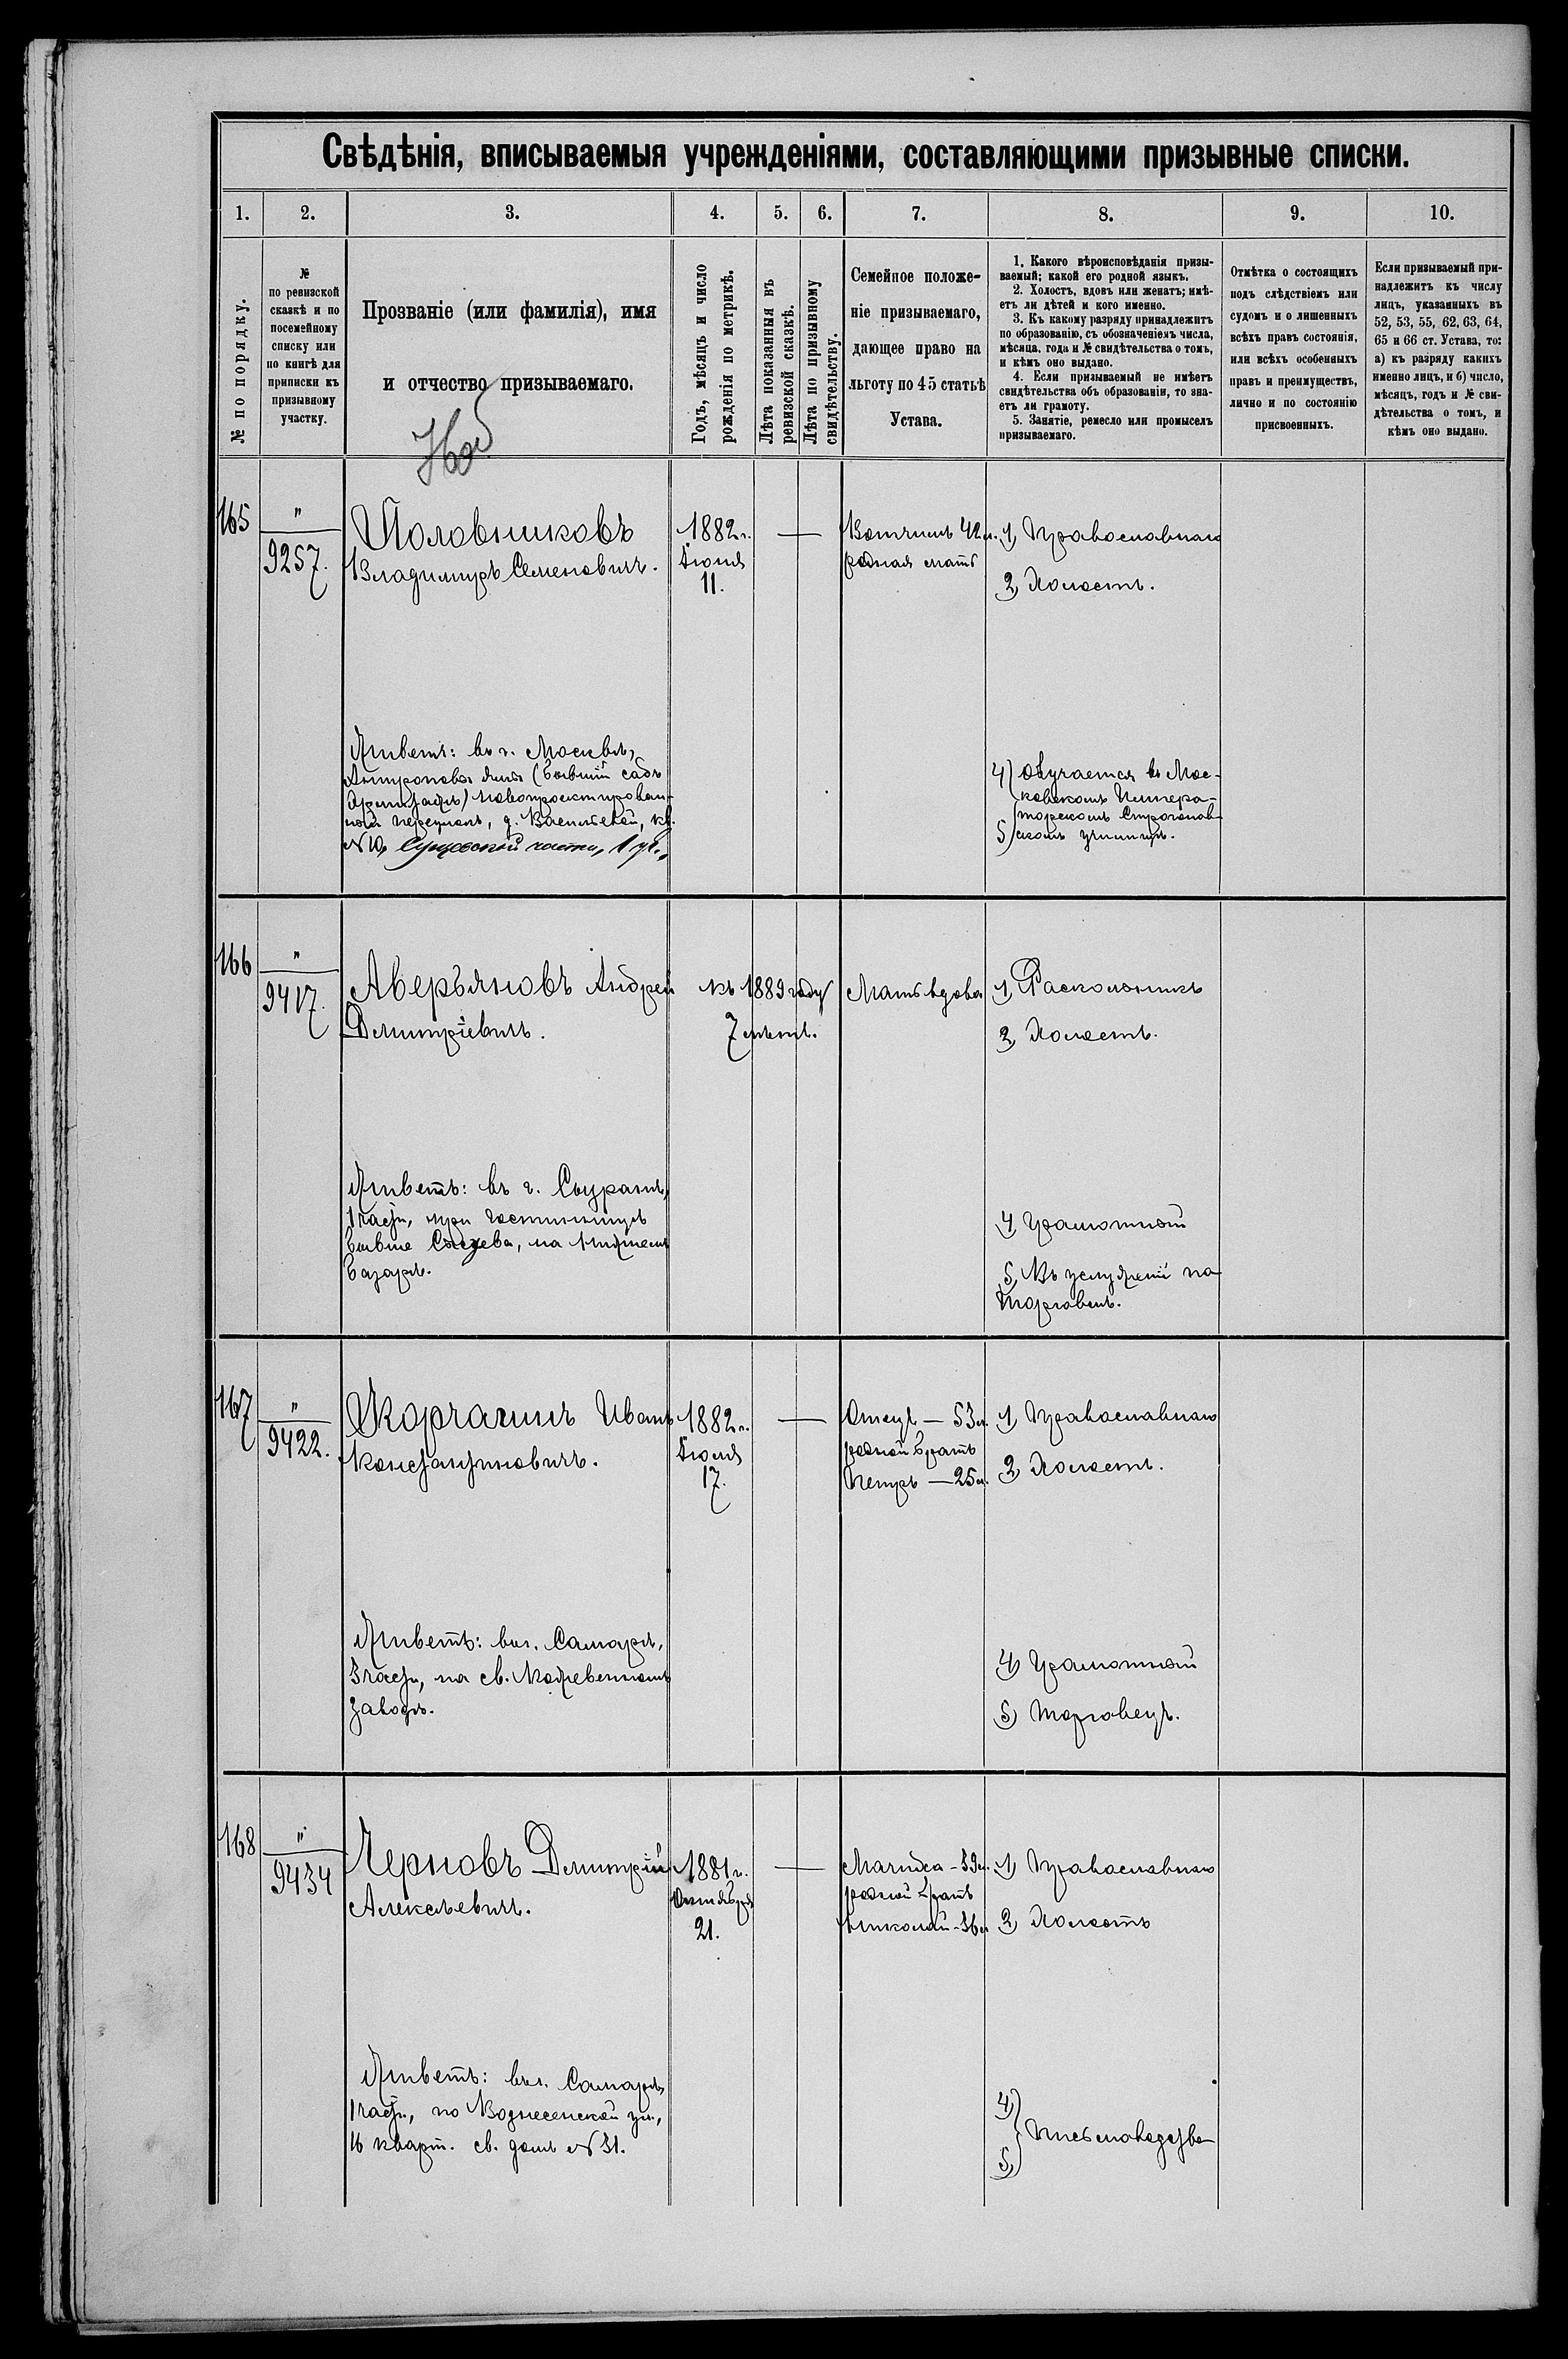 Свѣдѣнія, вписываемыя учрежденіями, составляющими призывные списки.
1. 2. 3. 4. 5. 6. 7. 8. 9. 10.
№ по порядку.
№
по ревизской
сказкѣ и по
посемейному
списку или
по книгѣ для
приписки къ
призывному
участку.
Прозваніе (или фамилія), имя
и отчество призываемаго.
Годъ, мѣсяцъ и число
рожденія по метрикѣ.
Лѣта показанныя въ
ревизской сказкѣ.
Лѣта по призывному
свидѣтельству.
Семейное положе-
ніе призываемаго,
дающее право на
льготу по 45 статьѣ
Устава.
1. Какого вѣроисповѣданія призы-
ваемый; какой его родной языкъ.
2. Холостъ, вдовъ или женатъ; имѣ-
етъ ли дѣтей и кого именно.
3. Къ какому разряду принадлежитъ
по образованію, съ обозначеніемъ числа,
мѣсяца, года и № свидѣтельства о томъ,
и кѣмъ оно выдано.
4. Если призываемый не имѣетъ
свидѣтельства объ образованіи, то зна-
етъ ли грамоту.
5. Занятіе, ремесло или промыселъ
призываемаго.
Отмѣтка о состоящихъ
подъ слѣдствіемъ или
судомъ и о лишенныхъ
всѣхъ правъ состоянія,
или всѣхъ особенныхъ
правъ и преимуществъ,
лично и по состоянію
присвоенныхъ.
Если призываемый при-
надлежитъ къ числу
лицъ, указанныхъ въ
52, 53, 55, 62, 63, 64,
65 и 66 ст. Устава, то:
а) къ разряду какихъ
именно лицъ, и б) число,
мѣсяцъ, годъ и № сви-
дѣтельства о томъ, и
кѣмъ оно выдано.
165
"
9257.
Половниковъ
Владиміръ Семеновичъ.
1882 г.
Іюля
11.
—
Вотчимъ 42 л.
родная мать
1) Православнаго
2) Холостъ.
Живетъ: въ г. Москвѣ,
Антроповы ямы (бывшій садъ
Эрмитажъ) новопроектирован-
ной переулокъ, д. Васильевой, кв.
№ 10, Сущевской части, 1 уч.
4) обучается въ Мос-
ковскомъ Импера-
торскомъ Строгонов-
5) скомъ училищѣ.
166
"
9417.
Аверьяновъ Андрей
Дмитріевичъ.
къ 1889 году
7 лѣтъ.
Мать вдова
1) Раскольникъ
2) Холостъ.
Живетъ: въ г. Сызрани,
1 части, при гостинницѣ
бывше Сыезева, на Хлѣбномъ
базарѣ.
4) Грамотный
5) Въ услуженіи по
торговлѣ.
167
"
9422.
Корчагинъ Иванъ
Константиновичъ.
1882 г.
Іюля
17.
—
Отецъ — 53 л.
родной братъ
Петръ — 25 л.
1) Православнаго
2) Холостъ.
Живетъ: въ г. Самарѣ,
3 части, на св. Кожевенномъ
заводѣ.
4) Грамотный
5) Торговецъ.
168
"
9434
Черновъ Дмитрій
Алексѣевичъ.
1881 г.
Октября
21.
—
Мачиха - 39 л.
родной братъ
Николай - 36 л.
1) Православнаго
2) Холостъ
Живетъ: въ г. Самарѣ,
1 части, по Вознесенской ул.,
16 кварт. св. домъ № 31.
4)
Письмоводство
5)